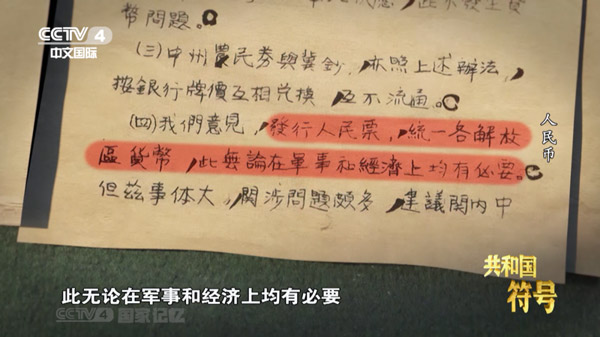 CCTV 4
中文国际
幣問題。
(三)中州農民券與冀鈔,亦照上述辦法,
按銀行牌價互相兌換,互不流通。
(四)我們意見,發行人民票,統一各解放
區貨幣,此無論在軍事和經濟上均有必要。
但茲事体大,関涉問題頗多,建議関内中
人民币
共和国
符号
此无论在军事和经济上均有必要
CCTV 4 国家记忆